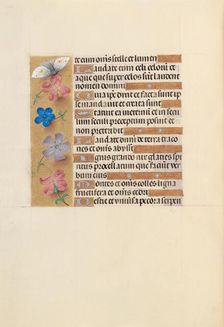 te eum om̄s stelle et lumen
Laudate eum celi celorū et
aque que super celos sūt laudent
nomen domini
Quia ipe dixit et facta sunt ip
se mandavit et creata sunt
Statuit ea in eternū et in sem
seculi preceptum posuit et
non preteribit
Laudate dominū de terra draco
nes et om̄s abyssi
Ignis grando nix glacies spi
ritus procellarum que faciūt ver
bum eius
Montes et om̄s colles ligna
fructifera et om̄s cedri
Bestie et universa pecora serpen